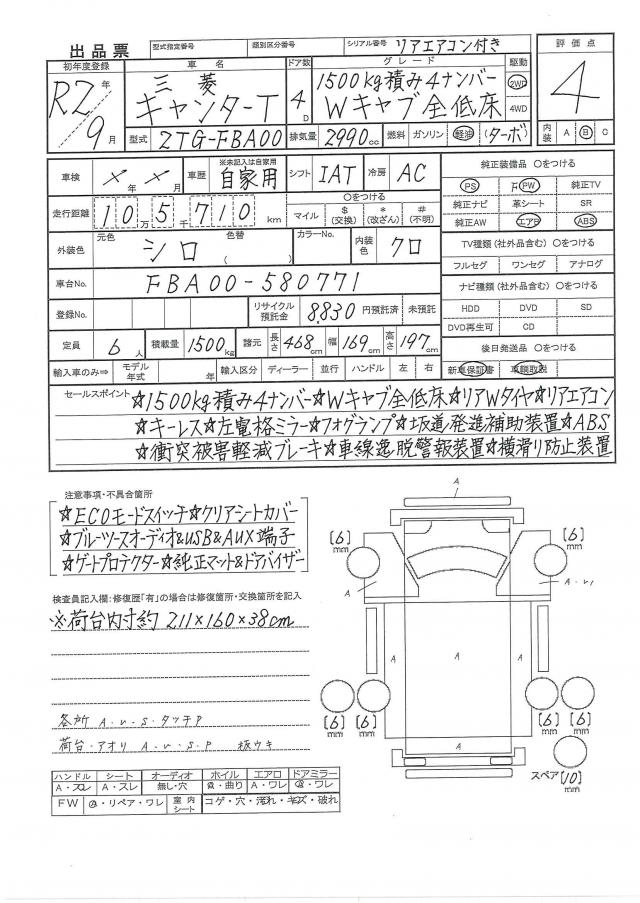 出品票 型式指定番号 類別区分番号 シリアル番号 リアエアコン付き 評価点
初年度登録 車名 ドア数 グレード 駆動
R2年 9月 三菱 キャンターT 4D 1500kg積み4ナンバー Wキャブ全低床 2WD 4WD 4
型式 2TG-FBA00 排気量 2990cc 燃料 ガソリン 軽油 (ターボ) 内装 A B C
車検 ×年 ×月 車歴 ※未記入は自家用 自家用 シフト IAT 冷房 AC 純正装備品 ○をつける
PS PW 純正TV
走行距離 10万5千710km ○をつける マイル $(交換) *(改ざん) #(不明) 純正ナビ 革シート SR
純正AW エアB ABS
外装色 元色 シロ 色替 ( ) カラーNo. 内装色 クロ TV種類(社外品含む) ○をつける
フルセグ ワンセグ アナログ
車台No. FBA00-580771 ナビ種類(社外品含む) ○をつける
登録No. リサイクル預託金 8,830 円預託済 未預託 HDD DVD SD
DVD再生可 CD
定員 6人 積載量 1500kg 諸元 長さ 468cm 幅 169cm 高さ 197cm 後日発送品 ○をつける
輸入車のみ⇒ モデル年式 年 輸入区分 ディーラー 並行 ハンドル 左 右 新車保証書 車輌取説
セールスポイント ☆1500kg積み4ナンバー☆Wキャブ全低床☆リアWタイヤ☆リアエアコン
☆キーレス☆左電格ミラー☆フォグランプ☆坂道発進補助装置☆ABS
☆衝突被害軽減ブレーキ☆車線逸脱警報装置☆横滑り防止装置
注意事項・不具合箇所
☆ECOモードスイッチ☆クリアシートカバー
☆ブルーツースオーディオ&USB&AUX端子
☆ゲートプロテクター☆純正マット&ドアバイザー
検査員記入欄:修復歴「有」の場合は修復箇所・交換箇所を記入
※荷台内寸約 211×160×38cm
各所 A・U・S・タッチP
荷台・アオリ A・U・S・P 板ウキ
A
[6]mm [6]mm
A A・U1
A A A
[6]mm [6]mm [6]mm [6]mm
A
スペア[10]mm
ハンドル シート オーディオ ホイル エアロ ドアミラー
A・スレ A・スレ 無し・穴 A・曲り A・ワレ A・ワレ
FW A・リペア・ワレ 室内シート コゲ・穴・汚れ・キズ・破れ